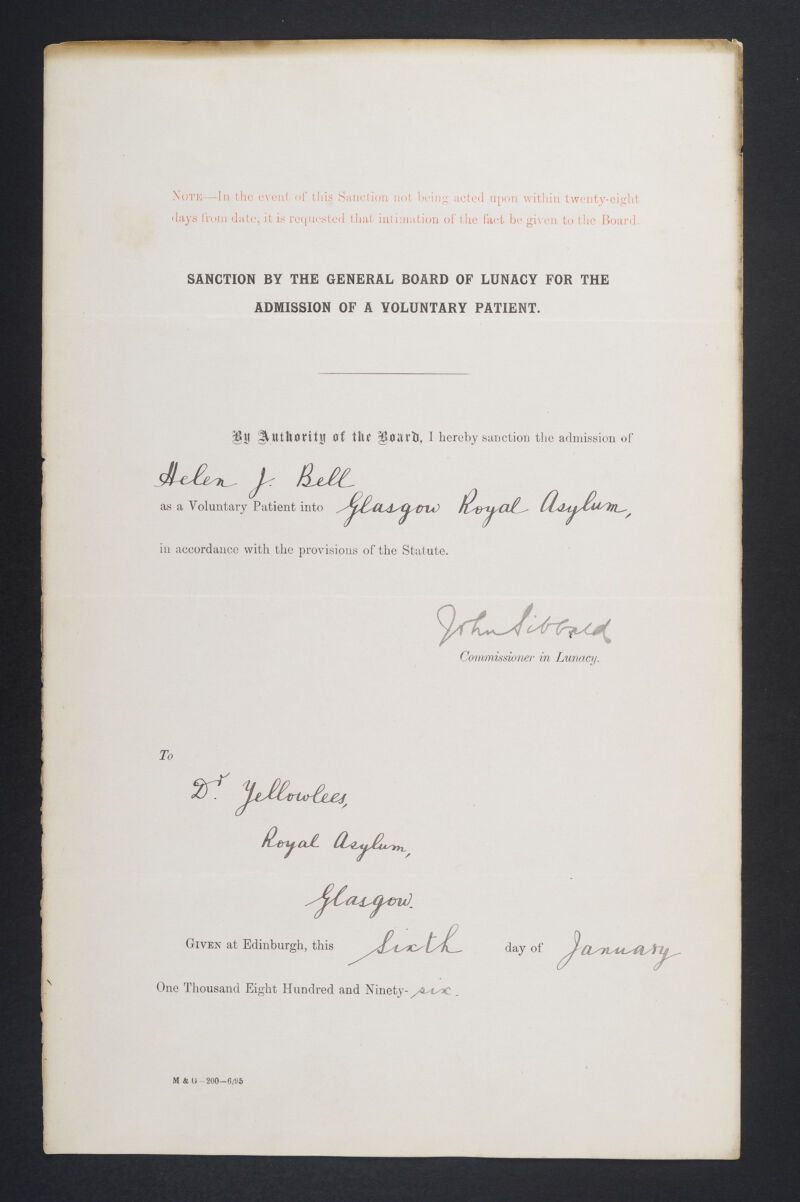 NOTE—In the event of this Sanction not being acted upon within twenty-eight
days from date, it is requested that intimation of the fact be given to the Board.
SANCTION BY THE GENERAL BOARD OF LUNACY FOR THE
ADMISSION OF A VOLUNTARY PATIENT.
By Authority of the Board, I hereby sanction the admission of
Helen J. Bell
as a Voluntary Patient into Glasgow Royal Asylum,
in accordance with the provisions of the Statute.
John Sibbald
Commissioner in Lunacy.
To
Dr. Yellowlees,
Royal Asylum,
Glasgow.
GIVEN at Edinburgh, this Sixth day of January
One Thousand Eight Hundred and Ninety-six.
M & G—200—6/95